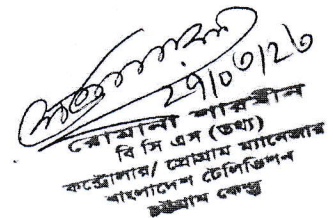 ২৭/০৩/২৩
রোমানা শারমীন
বি সি এস (তথ্য)
কন্ট্রোলার/ প্রোগ্রাম ম্যানেজার
বাংলাদেশ টেলিভিশন
চট্টগ্রাম কেন্দ্র